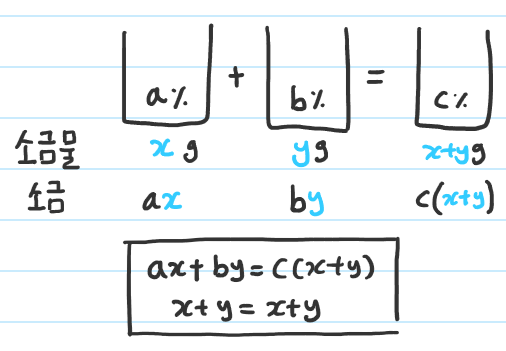 a% + b% = c%
소금물 x g y g x+y g
소금 ax by c(x+y)
ax + by = c(x+y)
x+y = x+y